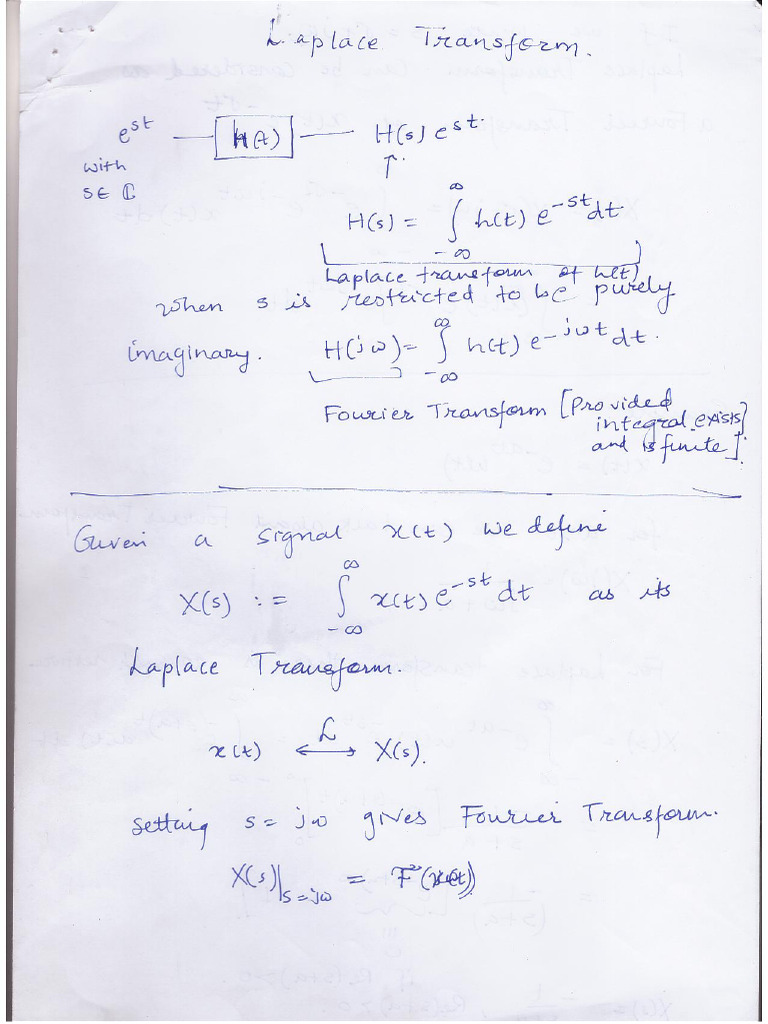 Laplace Transform.
e^st — h(t) — H(s) e^st.
with
s ∈ ℂ
↑
H(s) = ∫_{-∞}^{∞} h(t) e^{-st} dt
Laplace transform of h(t)
when s is restricted to be purely
imaginary. H(jω) = ∫_{-∞}^{∞} h(t) e^{-jωt} dt.
Fourier Transform [Provided
integral exists
and is finite].
Given a signal x(t) we define
X(s) := ∫_{-∞}^{∞} x(t) e^{-st} dt as its
Laplace Transform.
x(t) ⟷^L X(s).
Setting s = jω gives Fourier Transform.
X(s)|_{s=jω} = F(x(t))